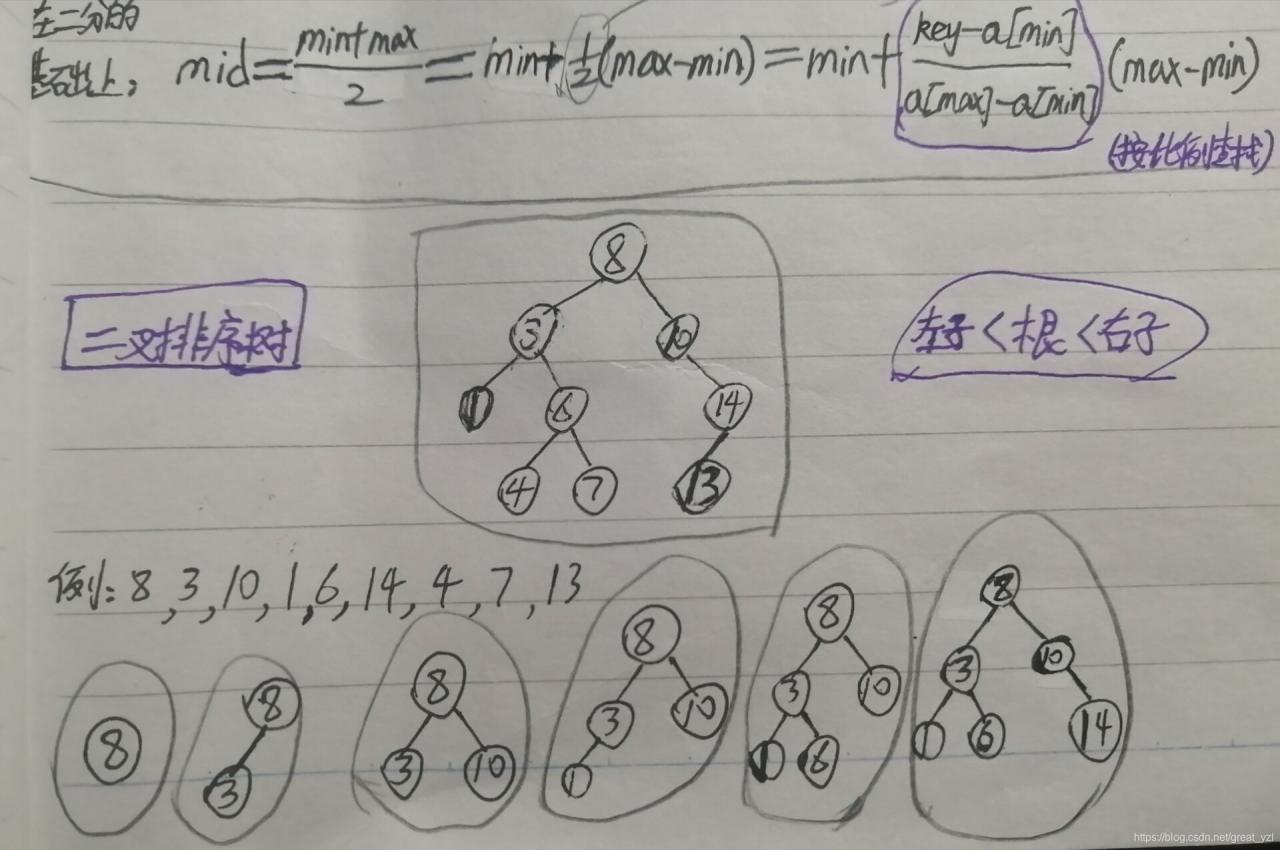 在二分的
基础上: mid = min+max / 2 = min + 1/2 (max-min) = min + key-a[min] / a[max]-a[min] (max-min)
(按比例查找)
8
二叉排序树
3 10
左子<根<右子
1 6 14
4 7 13
例: 8, 3, 10, 1, 6, 14, 4, 7, 13
8
8 3
8 3 10
8 3 10 1
8 3 10 1 6
8 3 10 1 6 14
https://blog.csdn.net/great_yzl